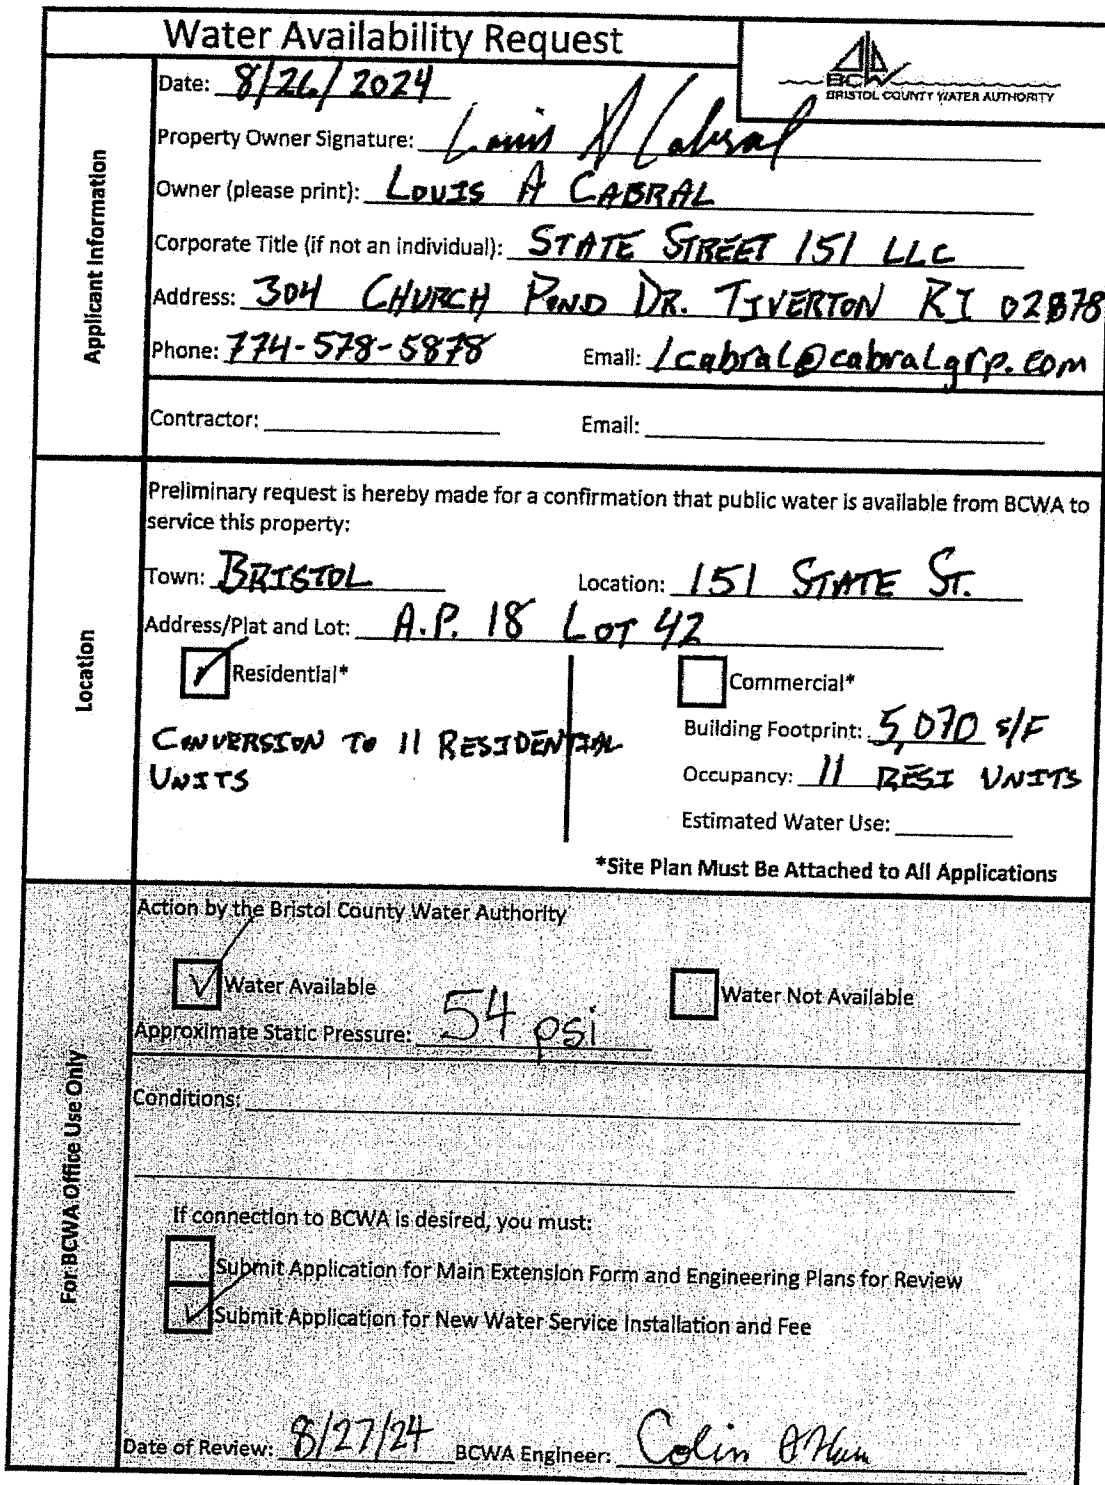 Water Availability Request
BCWA
BRISTOL COUNTY WATER AUTHORITY
Applicant Information
Date: 8/26/2024
Property Owner Signature: Louis A Cabral
Owner (please print): LOUIS A CABRAL
Corporate Title (if not an individual): STATE STREET 151 LLC
Address: 304 CHURCH POND DR. TIVERTON RI 02878
Phone: 774-578-5878 Email: lcabral@cabralgrp.com
Contractor: Email:
Location
Preliminary request is hereby made for a confirmation that public water is available from BCWA to
service this property:
Town: BRISTOL Location: 151 STATE ST.
Address/Plat and Lot: A.P. 18 LOT 42
Residential* Commercial*
CONVERSION TO 11 RESIDENTIAL
UNITS
Building Footprint: 5,070 S/F
Occupancy: 11 RESI UNITS
Estimated Water Use:
*Site Plan Must Be Attached to All Applications
For BCWA Office Use Only
Action by the Bristol County Water Authority
Water Available Water Not Available
Approximate Static Pressure: 54 psi
Conditions:
If connection to BCWA is desired, you must:
Submit Application for Main Extension Form and Engineering Plans for Review
Submit Application for New Water Service Installation and Fee
Date of Review: 8/27/24 BCWA Engineer: Colin